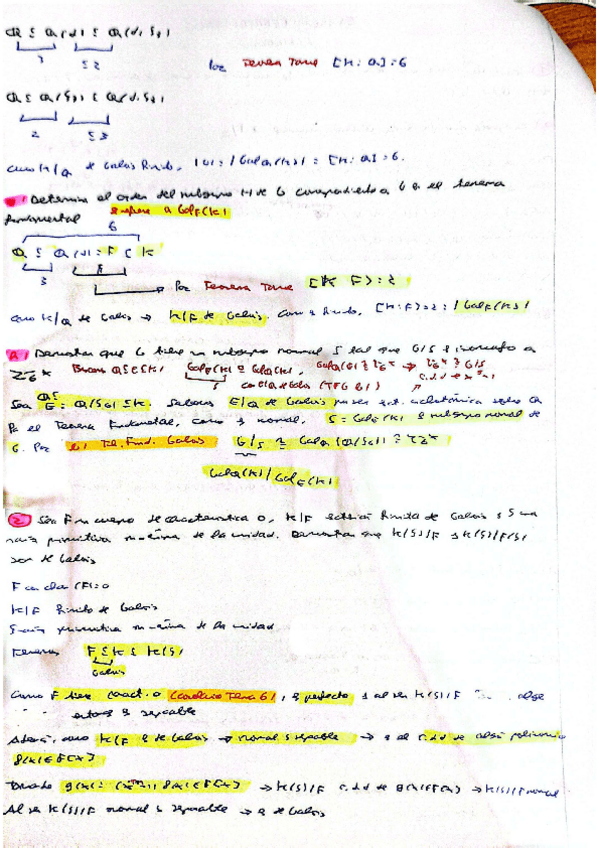 ℚ ≤ ℚ(α) ≤ ℚ(α, ζ₆)
3 ≤ 2
Por Teorema Torre [K:ℚ]=6
ℚ ≤ ℚ(ζ₆) ≤ ℚ(α, ζ₆)
2 ≤ 3
Como K/ℚ de Galois finita, |G|=|Gal_ℚ(K)|=[K:ℚ]=6.
Determina el orden del subgrupo H de G correspondiente a en el teorema
fundamental se refiere a Gal_F(K)
6
ℚ ≤ ℚ(α)=F ≤ K
3
Por Teorema Torre [K:F]=2
Como K/ℚ de Galois → K/F de Galois. Como es finita, [K:F]=2=|Gal_F(K)|
Demostrar que G tiene un subgrupo normal S tal que G/S es isomorfo a
ℤ₆ˣ Buscamos ℚ≤E≤K
Sea E=ℚ(ζ₆)≤K. Sabemos E/ℚ de Galois por ser ext. ciclotómica sobre ℚ
Por el Teorema Fundamental, como es normal, S=Gal_E(K) es subgrupo normal de
G. Por el T. Fund. Galois G/S ≅ Gal_ℚ(ℚ(ζ₆)) ≅ ℤ₆ˣ
Gal_ℚ(K)/Gal_E(K)
2 Sea F un cuerpo de característica 0, K/F extensión finita de Galois y ζ una
raíz primitiva n-ésima de la unidad. Demostrar que K(ζ)/F y K(ζ)/F(ζ)
son de Galois
F con char(F)=0
K/F finita de Galois
ζ raíz primitiva n-ésima de la unidad
Tenemos F ≤ K ≤ K(ζ)
Galois
Como F tiene caract. 0 (corolario Tema 6), es perfecto y al ser K(ζ)/F alge
entonces es separable
Además, como K/F es de Galois → normal y separable → es el c.d.d de algún polinomio
f(x)∈F[x]
Tomando g(x)=(xⁿ-1)f(x)∈F[x] → K(ζ)/F c.d.d de g(x)∈F[x] → K(ζ)/F normal
Al ser K(ζ)/F normal y separable → es de Galois